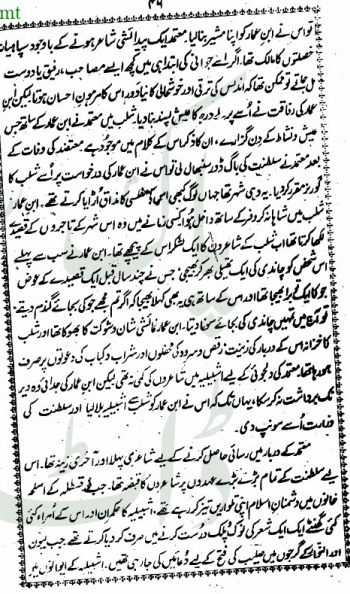 mt
۳۶
تو اس نے ابنِ عمار کو اپنا مشیر بنا لیا۔ معتمد ایک پیدائشی شاعر ہونے کے باوجود سپاہیانہ
خصلتوں کا مالک تھا۔ اگر اسے جوانی کی ابتدا ہی میں کچھ ایسے مصاحب، رفیق یا دوست
مل جاتے تو ممکن تھا کہ اندلس کی ترقی اور خوشحالی کا نیا دور اس کا مرہونِ احسان ہوتا لیکن ابنِ
عمار کی رفاقت نے اسے پرلے درجہ کا عیش پسند بنا دیا۔ شلب میں معتمد نے ابن عمار کے ساتھ جیسے
عیش و نشاط کے دن گزارے، ان کا ذکر اس کے کلام میں موجود ہے۔ معتضد کی وفات کے
بعد معتمد نے سلطنت کی باگ ڈور سنبھالی تو اس نے ابن عمار کی درخواست پر اسے شلب کا
گورنر مقرر کر دیا۔ یہ وہی شہر تھا جہاں لوگ کبھی اس کی مفلسی کا مذاق اڑایا کرتے تھے۔ ابن عمار
شلب میں شاہانہ کر و فر کے ساتھ داخل ہوا کسی زمانے میں وہ اس شہر کے تاجروں کے قصیدے
لکھا کرتا تھا اب شلب کے شاعروں کا ایک لشکر اس کے پیچھے تھا۔ ابن عمار نے سب سے پہلے
اس شخص کو چاندی کی ایک تھیلی بھر کر بھیجی جس نے چند سال قبل ایک قصیدے کے عوض
جَو کا ایک تھیلا بھیجا تھا اور اس کے ساتھ ہی یہ بھی کہلا بھیجا کہ اگر تم مجھے جَو کی بجائے گندم دیتے
تو آج میں تمہیں چاندی کی بجائے سونا دیتا۔ ابن عمار نمائشی شان و شوکت کا بھوکا تھا اور شلب
کا خزانہ اس کے دربار کی زینت، رقص و سرود کی محفلوں اور شراب و کباب کی دعوتوں پر صرف
ہو رہا تھا۔ معتمد کی دلجوئی کے لیے اشبیلیہ میں شاعروں کی کمی نہ تھی لیکن ابن عمار کی جدائی وہ دیر
تک برداشت نہ کر سکا، یہاں تک کہ اس نے ابن عمار کو شلب سے اشبیلیہ بلا لیا اور سلطنت کی
وزارت اسے سونپ دی۔
معتمد کے دربار میں رسائی حاصل کرنے کے لیے شاعری پہلا اور آخری زینہ تھا۔ اس
لیے سلطنت کے تمام بڑے بڑے عہدوں پر شاعروں کا قبضہ تھا۔ جب قسطلہ کے اسلحہ
خانوں میں دشمنانِ اسلام اپنی تلواریں تیز کر رہے تھے، اشبیلیہ کا حکمران اور اس کے امراء کئی
کئی گھنٹے ایک ایک شعر کی نوک پلک درست کرنے میں صرف کر دیا کرتے تھے جب لیون
اور گرجوں میں صلیب کی فتح کے لیے دعائیں کی جا رہی تھیں۔ اشبیلیہ کے ایوانوں میں